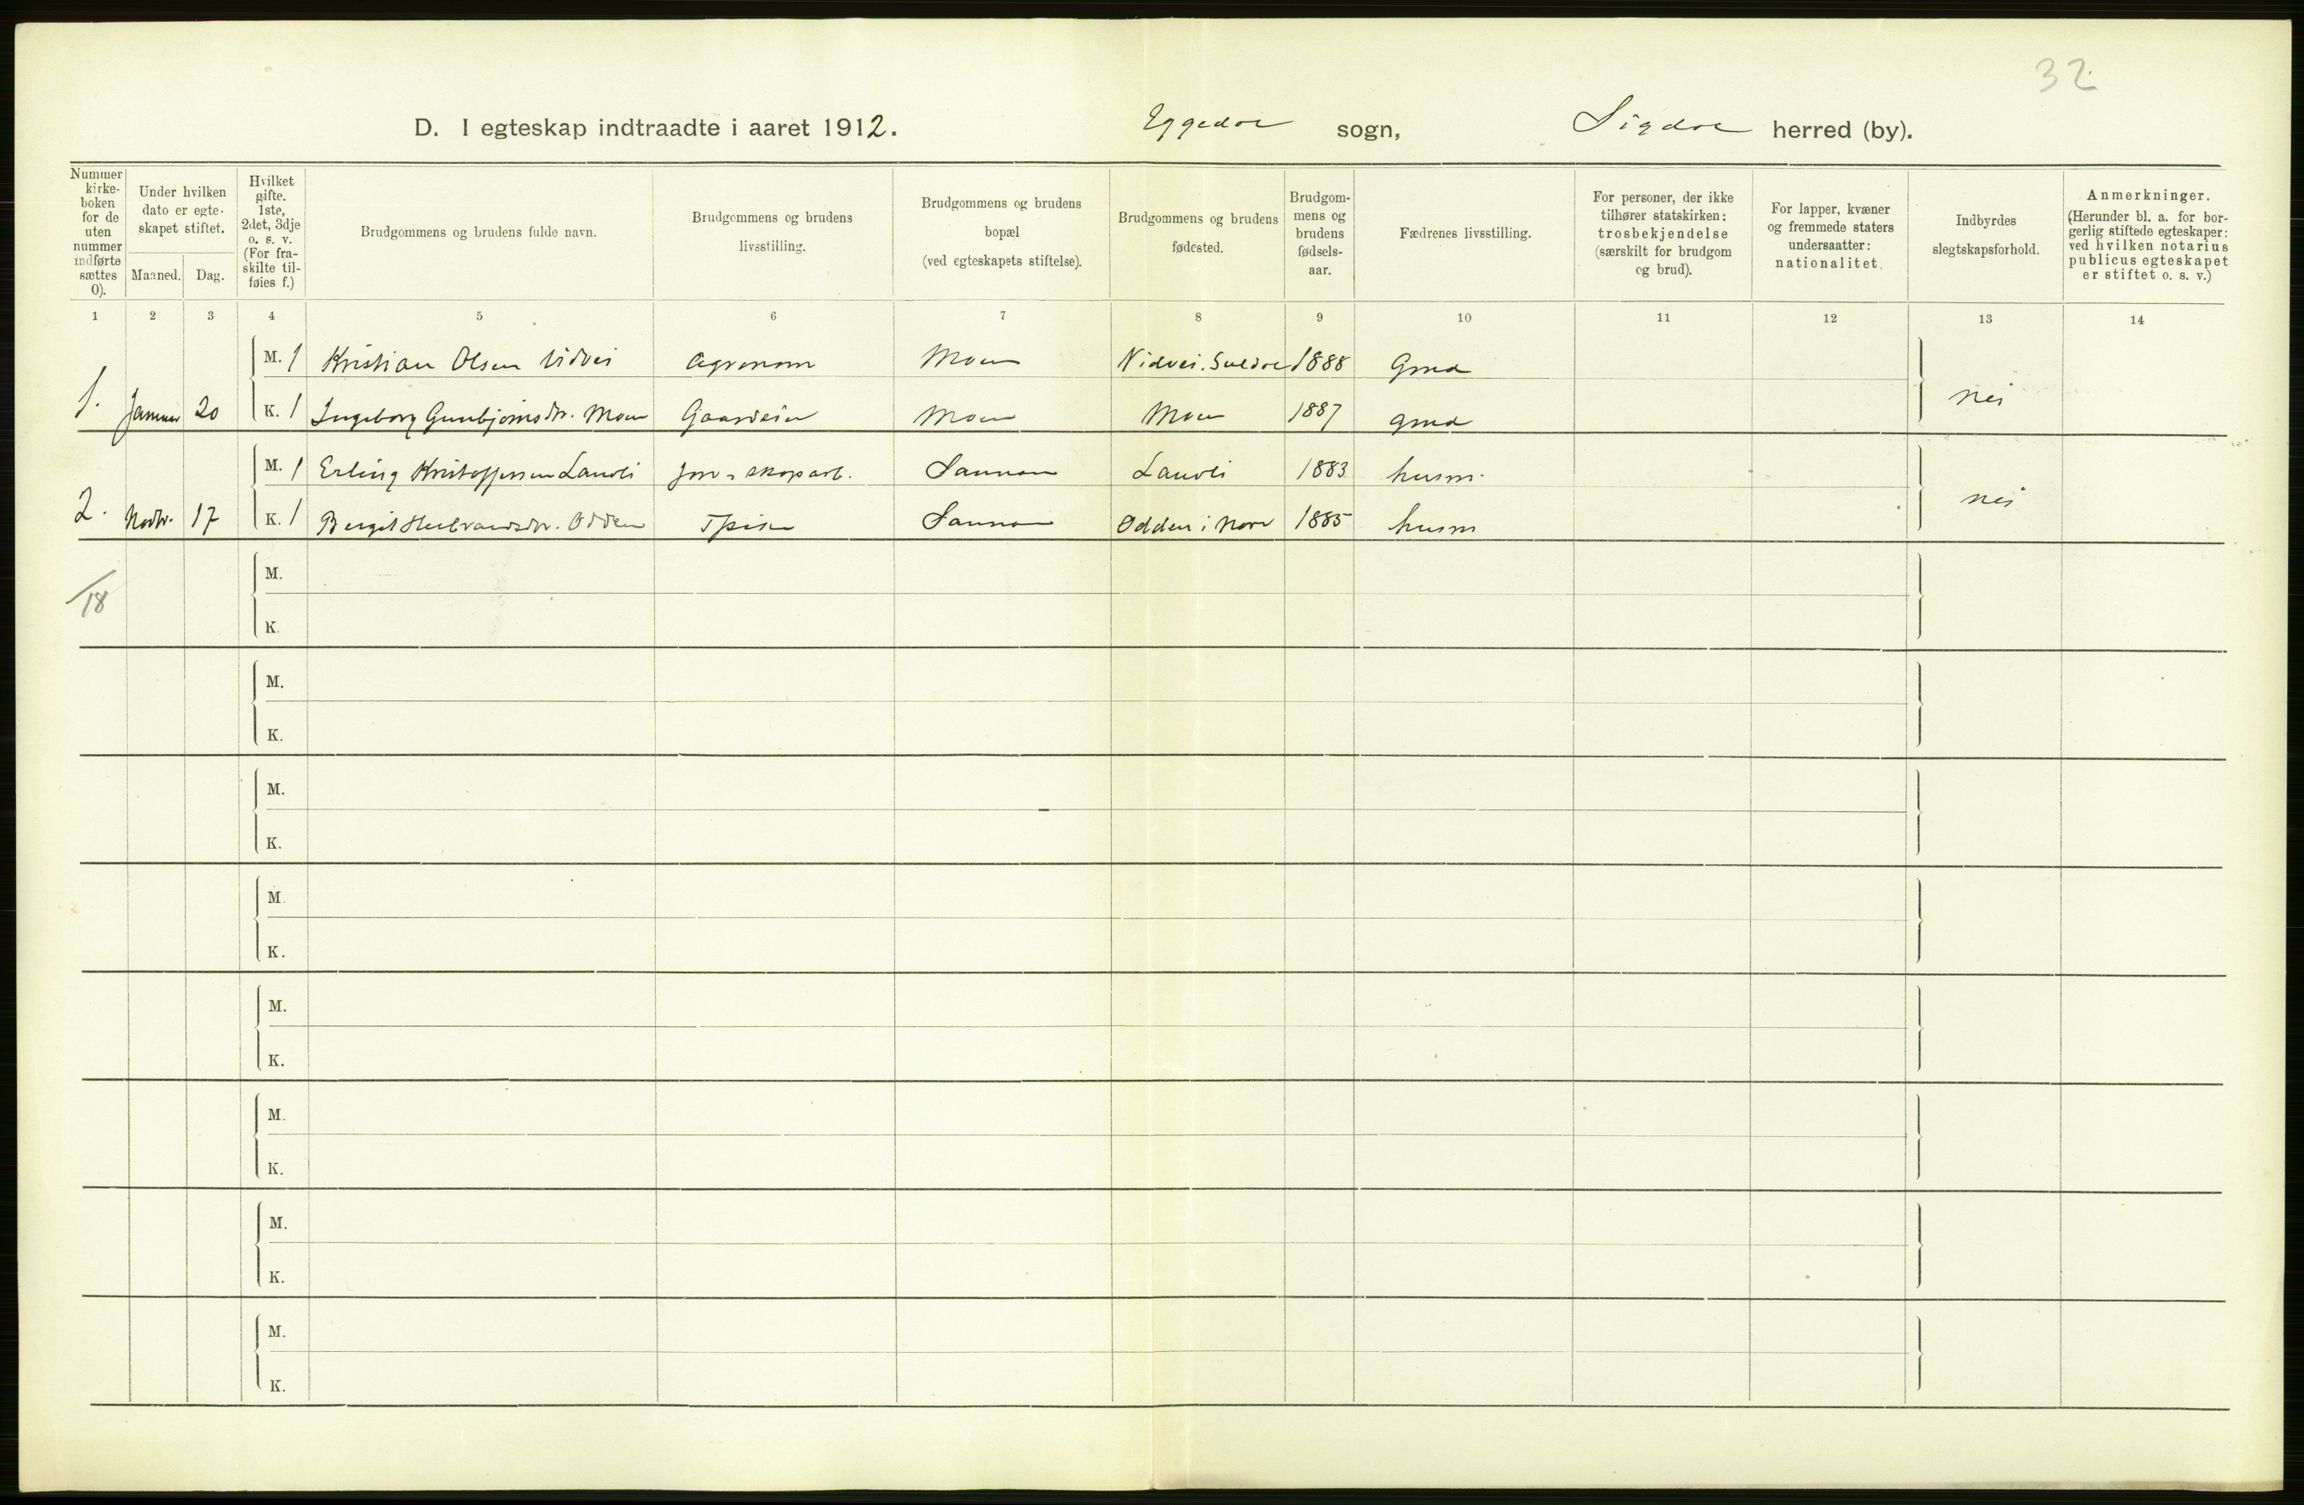 32
D. I egteskap indtraadte i aaret 1912. Eggedal sogn, Sigdal herred (by).
Nummer i kirkeboken (for de uten nummer indførte sættes 0).
Under hvilken dato er egteskapet stiftet.
Maaned. Dag.
Hvilket gifte. 1ste, 2det, 3dje o. s. v. (For fraskilte tilføies f.)
Brudgommens og brudens fulde navn.
Brudgommens og brudens livsstilling.
Brudgommens og brudens bopæl (ved egteskapets stiftelse).
Brudgommens og brudens fødested.
Brudgommens og brudens fødselsaar.
Fædrenes livsstilling.
For personer, der ikke tilhører statskirken: trosbekjendelse (særskilt for brudgom og brud).
For lapper, kvæner og fremmede staters undersaatter: nationalitet.
Indbyrdes slegtskapsforhold.
Anmerkninger. (Herunder bl. a. for borgerlig stiftede egteskaper: ved hvilken notarius publicus egteskapet er stiftet o. s. v.)
1 2 3 4 5 6 7 8 9 10 11 12 13 14
M. 1 Kristian Olsen Nidvei agronom Moen Nidvei. Suldal 1888 Gmd
1. Januar 20 K. 1 Ingeborg Gunbjørnsdtr. Moen Gaardeier Moen Moen 1887 gmd nei
M. 1 Erling Kristoffersen Lauvli jord- skogarb. Sannan Lauvli 1883 husm.
2. Novbr. 17 K. 1 Bergit Herbrandsdtr. Odden Tpike Sannan Odden i Nore 1885 husm nei
18
M.
K.
M.
K.
M.
K.
M.
K.
M.
K.
M.
K.
M.
K.
M.
K.